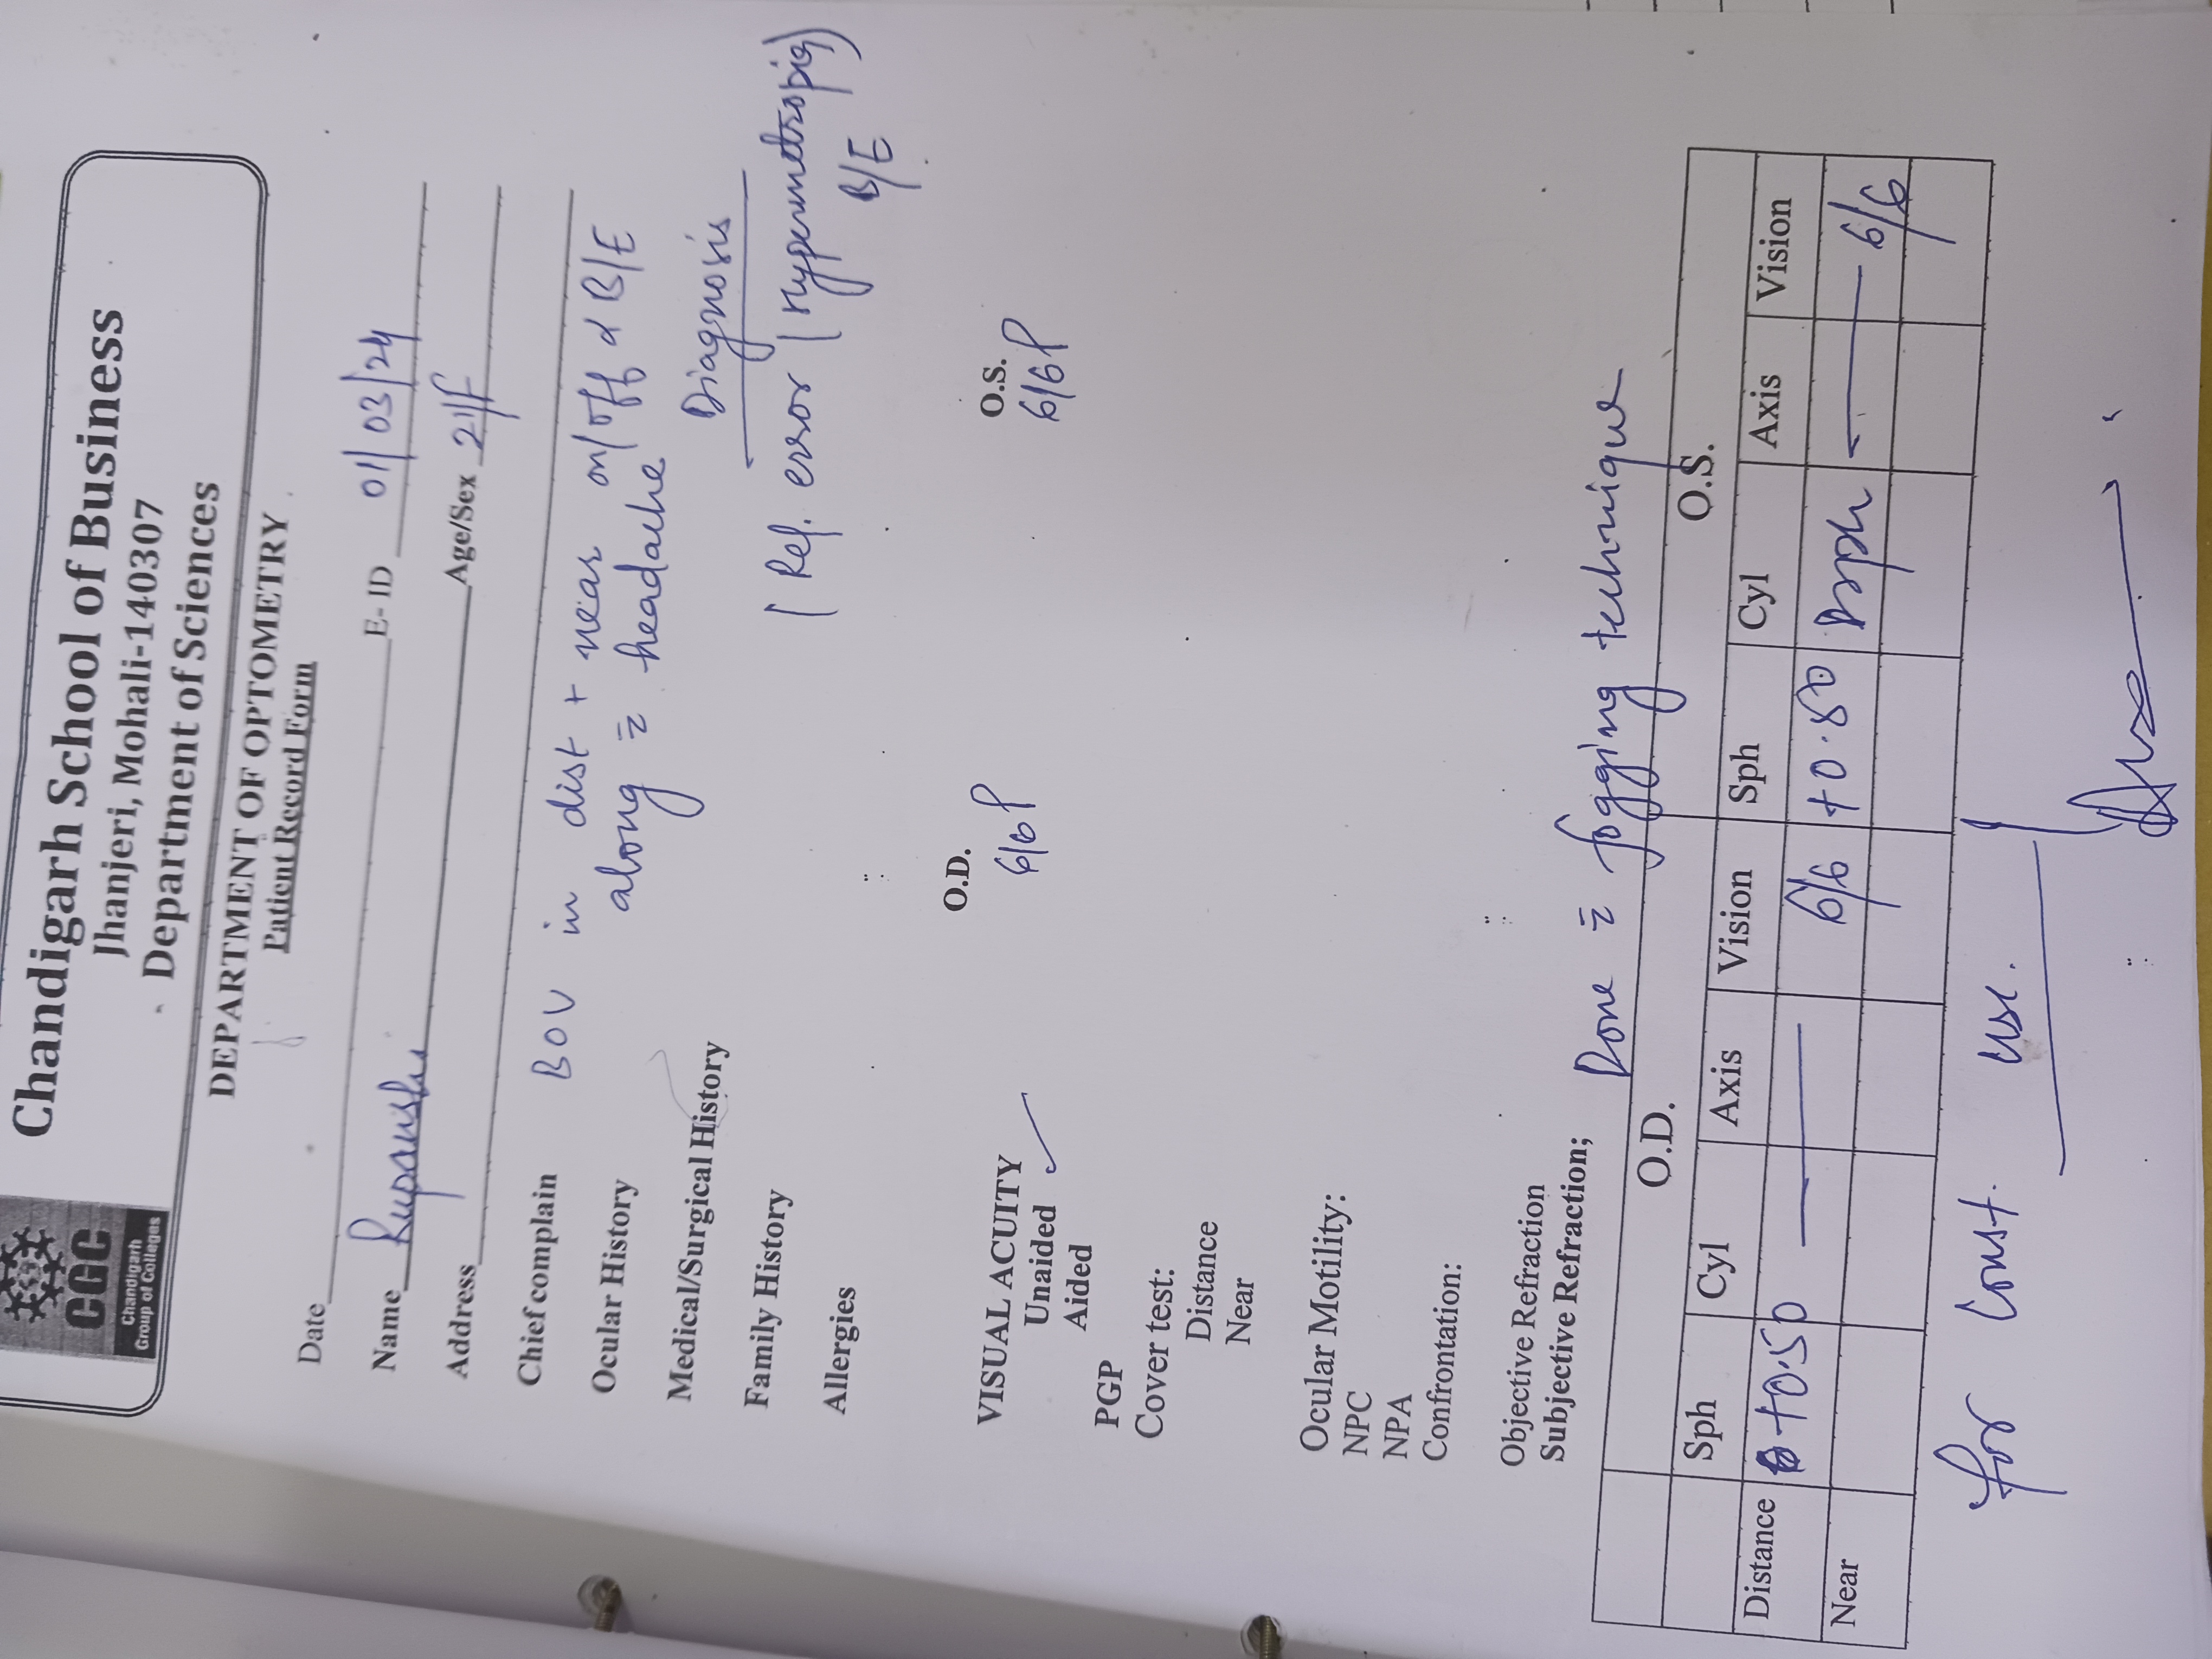 CGC
Chandigarh
Group of Colleges
Chandigarh School of Business
Jhanjeri, Mohali-140307
Department of Sciences
DEPARTMENT OF OPTOMETRY
Patient Record Form
Date
E- ID 01/03/24
Name Rupanshi
Age/Sex 21/F
Address
Chief complain BOV in dist + near on/off of B/E
along c̄ headache
Ocular History
Medical/Surgical History
Diagnosis
Family History
( Ref. error ( Hypermetropia)
B/E
Allergies
O.D. O.S.
VISUAL ACUITY
Unaided ✓ 6/6P 6/6P
Aided
PGP
Cover test:
Distance
Near
Ocular Motility:
NPC
NPA
Confrontation:
Objective Refraction
Subjective Refraction; Done c̄ fogging technique
O.D. O.S.
Sph Cyl Axis Vision Sph Cyl Axis Vision
Distance +0.50 — 6/6 +0.50 Dsph — 6/6
Near
for const. use.